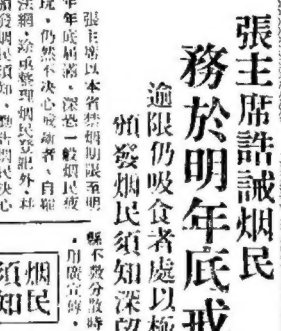 張主席誥誡烟民
務於明年底戒
逾限仍吸食者處以極
頒發烟民須知深望
張主席以本省禁烟期限至明
年年底屆滿,深恐一般烟民疲
玩,仍然不決心戒
法網,除重整理烟民登記外,
烟民須知,
烟民決心
縣不敷分散時
,用廣宣傳,
烟民
須知